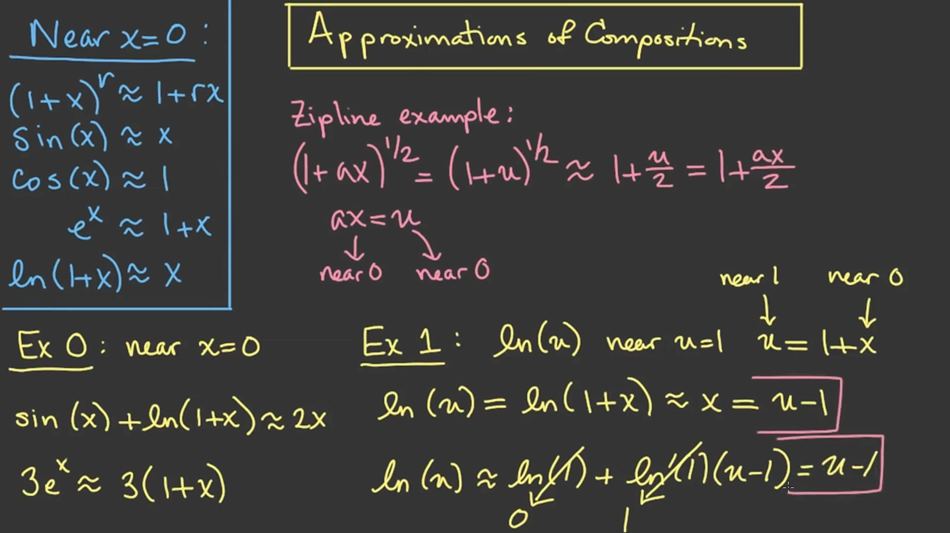 Near x=0:
(1+x)^r ≈ 1+rx
sin(x) ≈ x
cos(x) ≈ 1
e^x ≈ 1+x
ln(1+x) ≈ x
Approximations of Compositions
Zipline example:
(1+ax)^1/2 = (1+u)^1/2 ≈ 1+u/2 = 1+ax/2
ax=u
near 0 near 0
Ex 0: near x=0
sin(x)+ln(1+x) ≈ 2x
3e^x ≈ 3(1+x)
near 1 near 0
Ex 1: ln(u) near u=1 u=1+x
ln(u) = ln(1+x) ≈ x = u-1
ln(u) ≈ ln(1) + ln'(1)(u-1) = u-1
0 1